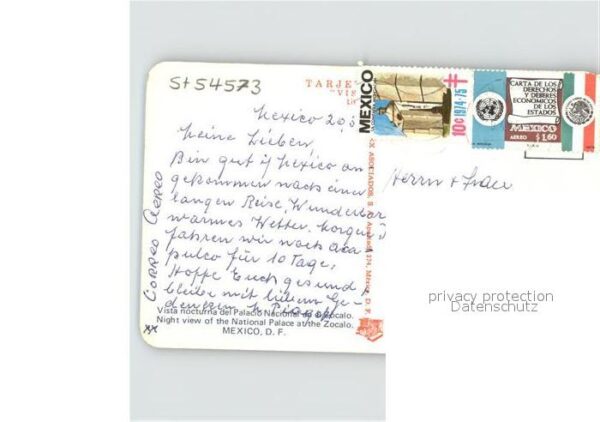 St54573
TARJE
MEXICO
10c 1974-75
CARTA DE LOS
DERECHOS
Y DEBERES
ECONOMICOS
DE LOS
ESTADOS
MEXICO
AEREO $1.60
Mexico 20,
Meine Lieben,
Bin gut in Mexico an
gekommen nach einer
langen Reise. Wunderbar
warmes Wetter. Morgen
fahren wir nach Aca
pulco für 10 Tage.
Hoffe Euch gesund &
bleibe mit lieben Ge
denken
Correo Aereo
Herrn + Frau
Vista nocturna del Palacio Nacional Zócalo.
Night view of the National Palace at the Zocalo.
MEXICO, D. F.
X ASOCIADOS, S. Apartado 274, México, D. F.
xx
privacy protection
Datenschutz